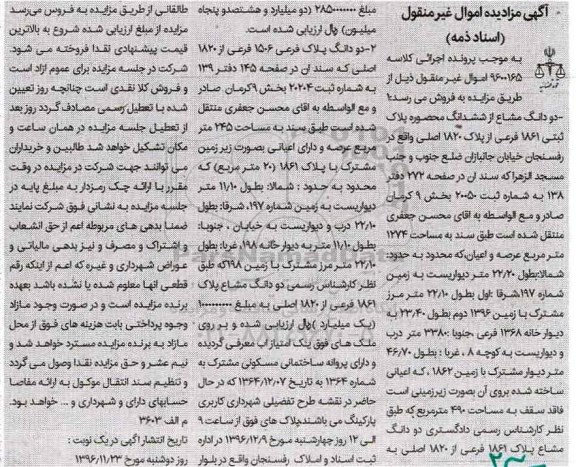 آگهی مزایده اموال غیر منقول
(اسناد ذمه)
به موجب پرونده اجرائی کلاسه
۹۶۰۰۱۶۵ اموال غیر منقول ذیل از
طریق مزایده به فروش می رسد:۱
-دو دانگ مشاع از ششدانگ محصوره پلاک
ثبتی ۱۸۶۱ فرعی از پلاک ۱۸۲۰ اصلی واقع در
رفسنجان خیابان جانبازان ضلع جنوب و جنب
مسجد الزهرا که سند ان در صفحه ۲۷۲ دفتر
۱۳۸ به شماره ثبت ۲۰۰۵۰ بخش ۹ کرمان
صادر و مع الواسطه به اقای محسن جعفری
منتقل شده است طبق سند به مساحت ۱۲۷۴
متر مربع عرصه و اعیان،که محدود به حدود:
شمالا:بطول ۲۲/۲۰ متر دیواریست به زمین
شماره ۱۹۷،شرقا :اول بطول ۲۲/۱۰ متر مرز
مشترک با زمین ۱۳۹۶ دوم بطول ۲۳/۴۰ به
دیوار خانه ۱۳۶۸ فرعی ،جنوبا: ۳۳۸۰ متر درب
و دیواریست به کوچه ۸ ، غربا : بطول ۴۶/۷۰
متر دیوار مشترک با زمین ۱۸۶۲، که اعیانی
ساخته شده بروی آن بصورت زیرزمینی است
فاقد سقف به مساحت ۴۹۰ مترمربع که طبق
نظر کارشناس رسمی دادگستری دو دانگ
مشاع پلاک ۱۸۶۱ فرعی از ۱۸۲۰ اصلی به
مبلغ ۲۸۵۰۰۰۰۰۰۰ (دو میلیارد و هشتصدو پنجاه
میلیون) ریال ارزیابی شده است.
۲-دو دانگ پلاک فرعی ۱۵۰۶ فرعی از ۱۸۲۰
اصلی که سند ان در صفحه ۱۴۵ دفتر ۱۳۹
به شماره ثبت ۲۰۲۰۴ بخش ۹کرمان صادر
و مع الواسطه به اقای محسن جعفری منتقل
شده است طبق سند به مساحت ۲۴۵ متر
مربع عرصه و دارای اعیانی بصورت زیر زمین
مشترک با پلاک ۱۸۶۱ (۲۰ متر مربع) که
محدود به حدود : شمالا: بطول ۱۱/۱۰ متر
دیواریست به زمین شماره ۱۹۷، شرقا: بطول
۲۲/۱۰ درب و دیواریست به خیابان ، جنوبا:
بطول ۱۱/۱۰ متر به دیوار خانه ۱۹۸، غربا: بطول
۲۲/۱۰ متر مرز مشترک با زمین ۱۹۸که طبق
نظر کارشناس رسمی دو دانگ مشاع پلاک
۱۸۶۱ فرعی از ۱۸۲۰ اصلی به مبلغ ۱۰۰۰۰۰۰۰۰۰
(یک میلیارد )ریال ارزیابی شده و بر روی
ملک های فوق بنای معرفی گردیده
و دارای پروانه ساختمانی مسکونی مشترک به
شماره ۱۳۶۴ به تاریخ ۱۳۶۴/۱۲/۰۷ که در حال
حاضر در نقشه طرح تفصیلی شهرداری کاربری
پارکینگ می باشندپلاک های فوق از ساعت ۹
الی ۱۲ روز چهارشنبه مورخ ۱۳۹۶/۱۲/۹ در اداره
ثبت اسناد و املاک رفسنجان واقع در بلوار
طالقانی از طریق مزایده به فروش می‌رسد
مزایده از مبلغ ارزیابی شده شروع به بالاترین
قیمت پیشنهادی نقدا فروخته می شود.
شرکت در جلسه مزایده برای عموم ازاد است
و فروش کلا نقدی است چنانچه روز تعیین
شده با تعطیل رسمی مصادف گردد روز بعد
از تعطیل جلسه مزایده در همان ساعت و
مکان تشکیل خواهد شد طالبین و خریداران
می توانند جهت شرکت در مزایده در وقت
مقرر با ارائه چک رمزدار به مبلغ پایه در
جلسه مزایده به نشانی فوق شرکت نمایند
ضمنا بدهی های مربوطه اعم از حق انشعاب
و اشتراک و مصرف و نیز بدهی مالیاتی و
عوارض شهرداری و غیره که اعم از اینکه رقم
قطعی انها معلوم شده یا نشده باشد بعهده
برنده مزایده است و در صورت وجود مازاد
وجوه پرداختی بابت هزینه های فوق از محل
مازاد به برنده مزایده مسترد خواهد شد و
نیم عشر و حق مزایده نقدا وصول می گردد
و تنظیم سند انتقال موکول به ارائه مفاصا
حسابهای دارای و شهرداری و ... خواهد بود.
م الف ۳۶۰۳
تاریخ انتشار آگهی در یک نوبت :
روز دوشنبه مورخ ۱۳۹۶/۱۱/۲۳
ParsNamadData